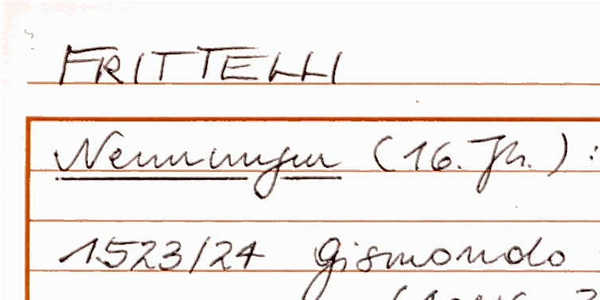 FRITTELLI
Nennungen (16. Jh.):
1523/24 Gismondo